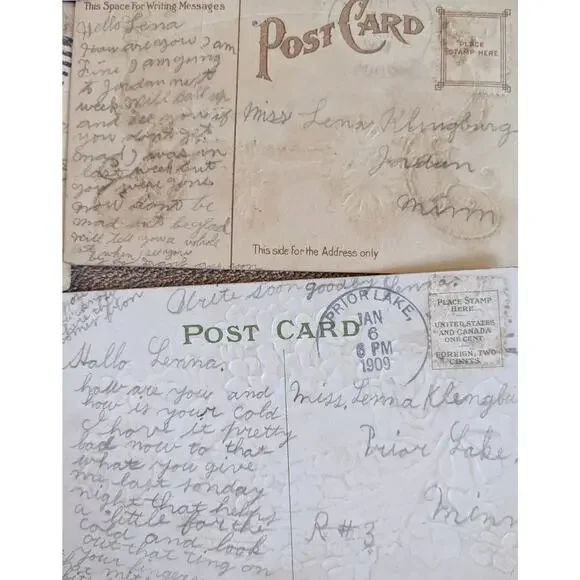 This Space For Writing Messages
POST CARD
PLACE
STAMP HERE
Hello Lena
How are you I am
Fine I am going
to Jordan next
week will call up
and see you if
you dont get
mad I was in
last week but
you were gone
now dont be
mad but be glad
will tell you a whole
lot when I see you
Miss Lena Klingburg
Jordan
Minn
This side for the Address only
Write soon goodby Lenna.
POST CARD
PRIOR LAKE,
JAN
6
6 PM
1909
PLACE STAMP
HERE
UNITED STATES
AND CANADA
ONE CENT
FOREIGN, TWO
CENTS
Hallo Lenna.
how are you and
how is your cold
I have it pretty
bad now to that
what you give
me last sonday
night that helps
a little for the
cold and look
out that ring on
your finger
Miss. Lenna Klengbu
Prior Lake,
Minn
R # 3